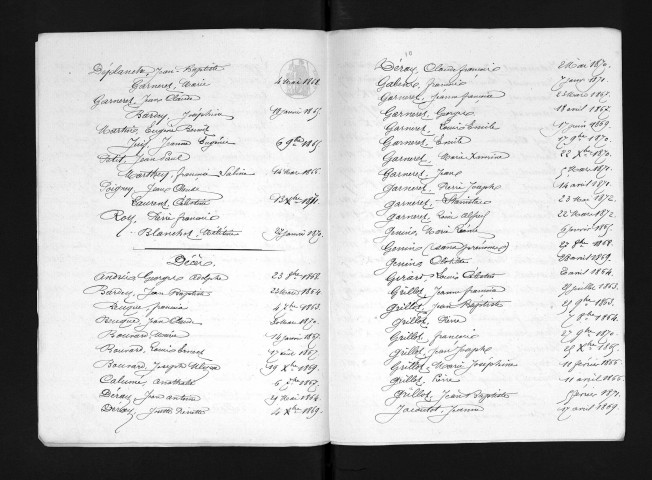 Déplanche, Jean-Baptiste
Garneret, Marie 4 mai 1868.
Garneret, Jean Claude
Bardey, Joséphine 18 janvier 1865.
Marthey, Eugène Benoit
Juif, Jeanne Eugénie 6 9bre 1865.
Petit, Jean Paul
Marthey, françoise Sabine 14 mai 1866.
Poigney, Jean Claude
Laurent, Célestine 13 Xbre 1871.
Roy, Pierre françois
Blanchot, Mathilde 27 janvier 1870.
Décès
André, Georges Adolphe 23 8bre 1862.
Bardey, Jean Baptiste 23 mai 1864
Beuque, francois 4 7bre 1863.
Beuque, Jean Claude 1870.
Bouvard, Marie 14 janvier 1867.
Bouvard, Louis Ernest 1867.
Bouvard, Joseph Ulysse 29 Xbre 1869.
6 1867.
Déray, Jean antoine 29 mai 1864.
4 Xbre 1869.
10
Déray, Claude francois 2 mai 1870.
Gabiot, francois 7 janv 1870.
Garneret, Jeanne francoise 23 mars 1867.
Garneret, Georges 18 avril 1867.
Garneret, Louis Emile 17 juin 1869.
Garneret, Emile 17 9bre 1870.
Garneret, Marie 22 Xbre 1870.
Garneret, Jean 5 mai 1870.
Garneret, Pierre Joseph 14 avril 1870.
Garneret, Stanislas 23 mai 1872.
Garneret, Alfred 22 mars 1872.
Marie 6 janvier 1865.
(sans prénoms) 27 8bre 1868.
Clotilde 28 avril 1869.
Gérard, Louis Célestin 3 avril 1864.
Grillot, Jeanne francoise 21 juillet 1863.
Grillot, Jean Baptiste 21 9bre 1863.
Grillot, Pierre 8bre 1864.
Grillot, francois 2 9bre 1870.
Grillot, Jean Joseph 25 Xbre 1865.
Grillot, Marie Joséphine 11 février 1866.
Grillot, Pierre 11 avril 1866.
Grillot, Jean Baptiste février 1871.
Jacoutot, Jeanne 17 avril 1869.